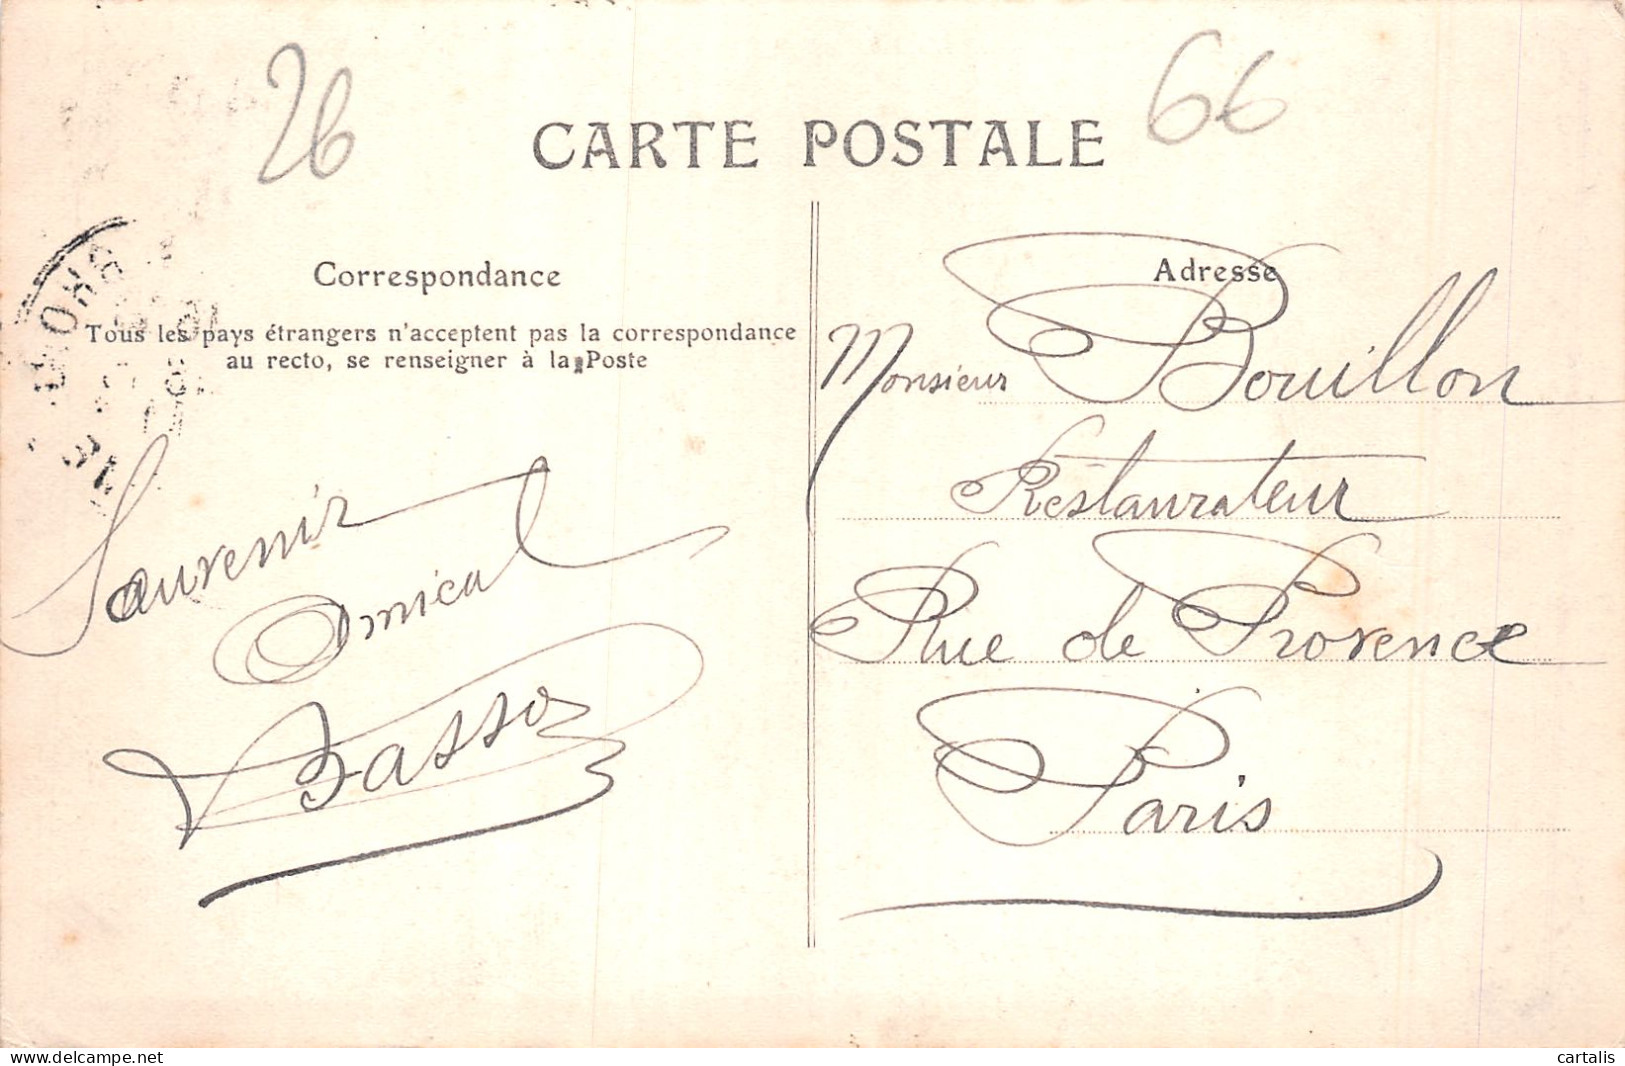 26
66
CARTE POSTALE
Correspondance
Tous les pays étrangers n'acceptent pas la correspondance
au recto, se renseigner à la Poste
Souvenir
Amical
Basso
Adresse
Monsieur Bouillon
Restaurateur
Rue de Provence
Paris
www.delcampe.net
cartalis